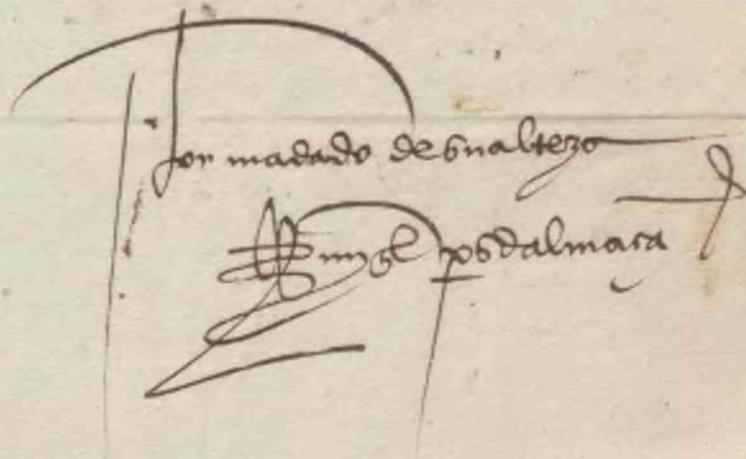 por madado de su alteza
mygl ps dalmaça